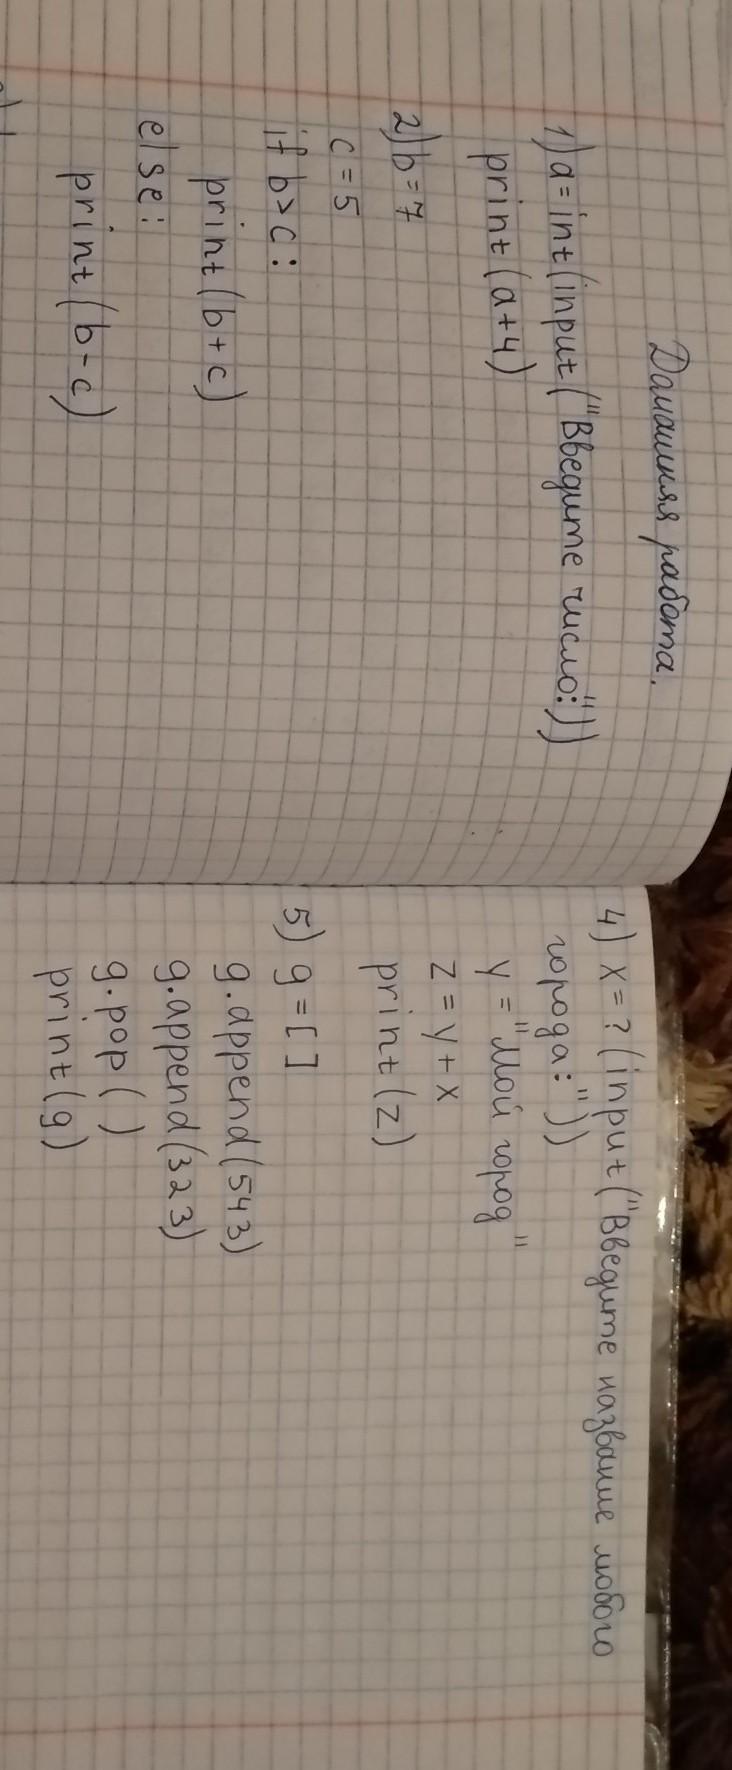 Домашняя работа.
1) a=int(input("Введите число:"))
print(a+4)
2) b=7
c=5
if b>c:
print(b+c)
else:
print(b-c)
4) x=?(input("Введите название любого
города:"))
y="Мой город"
z=y+x
print(z)
5) g=[ ]
g.append(543)
g.append(323)
g.pop( )
print(g)